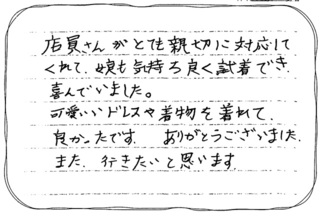 店員さんがとても親切に対応して
くれて、娘も気持ち良く試着でき
喜んでいました。
可愛いいドレスや着物を着れて
良かったです。 ありがとうございました
また 行きたいと思います